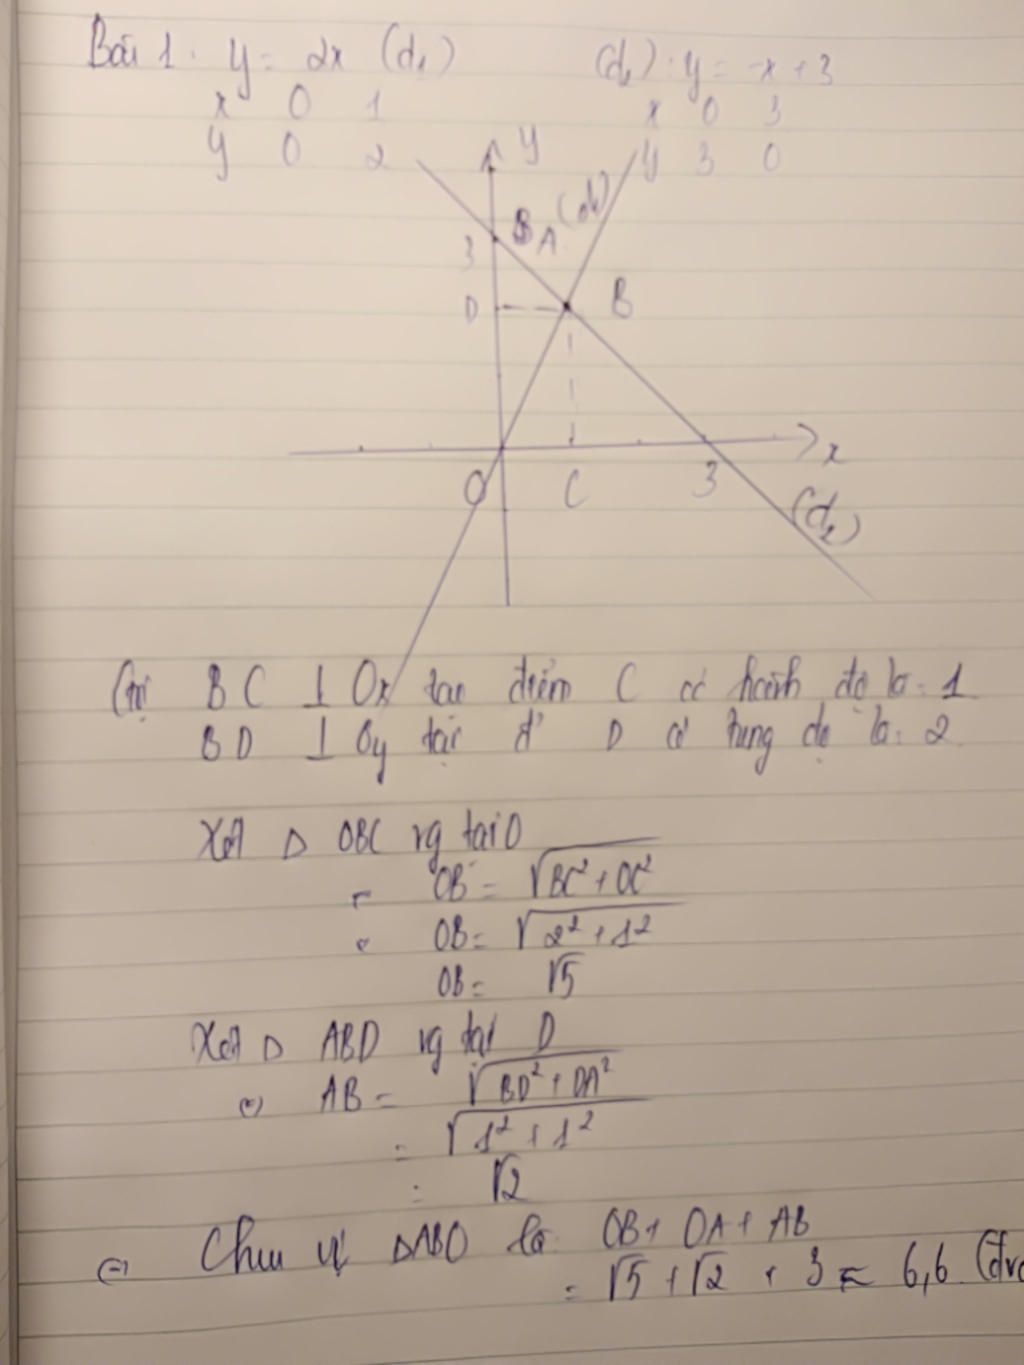 Bài 1. y = 2x (d₁) (d₂): y = -x + 3
x 0 1 x 0 3
y 0 2 y 3 0
y
A (d₁)
3
D B
x
O C 3
(d₂)
BC ⊥ Ox tại điểm C có hoành độ là: 1
BD ⊥ Oy tại đ' D có tung độ là: 2
Xét Δ OBC vg tại O
OB = √BC² + OC²
OB = √2² + 1²
OB = √5
Xét Δ ABD vg tại D
AB = √BD² + DA²
= √1² + 1²
= √2
Chu vi ΔABO là OB + OA + AB
= √5 + √2 + 3 ≈ 6,6 (đv